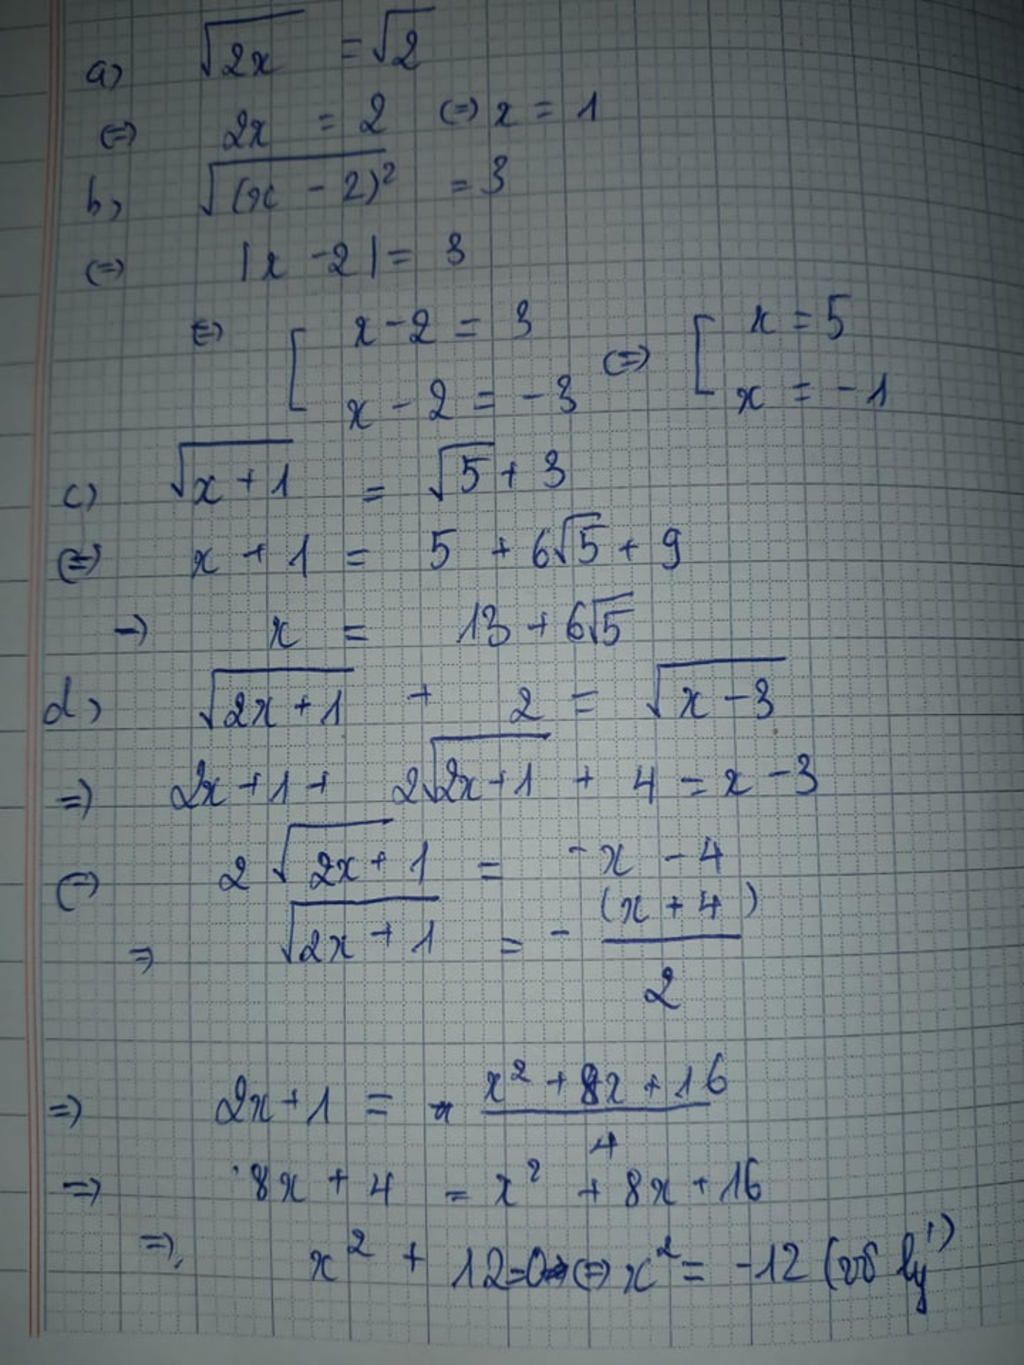 a) √2x = √2
⇔ 2x = 2 ⇔ x = 1
b) √(x - 2)² = 3
⇔ |x - 2| = 3
⇔ [ x - 2 = 3 ⇔ [ x = 5
x - 2 = -3 x = -1
c) √x + 1 = √5 + 3
⇔ x + 1 = 5 + 6√5 + 9
→ x = 13 + 6√5
d) √2x + 1 + 2 = √x - 3
⇒ 2x + 1 + 2√2x + 1 + 4 = x - 3
⇔ 2 √2x + 1 = - x - 4
⇒ √2x + 1 = - (x + 4)
2
⇒ 2x + 1 = x² + 8x + 16
4
⇒ 8x + 4 = x² + 8x + 16
⇒ x² + 12 = 0 ⇔ x² = -12 (vô lý)